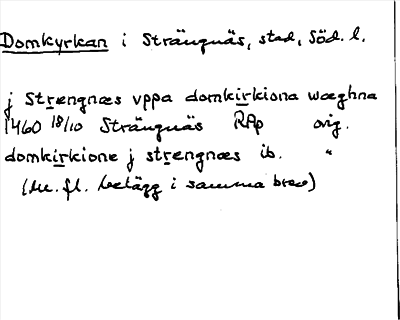 Domkyrkan i Strängnäs, stad, Söd. l.
j Strengnæs vppa domkirkiona wæghna
1460 18/10 Strängnäs RAp orig.
domkirkione j strengnæs ib. "
(m. fl. belägg i samma brev)